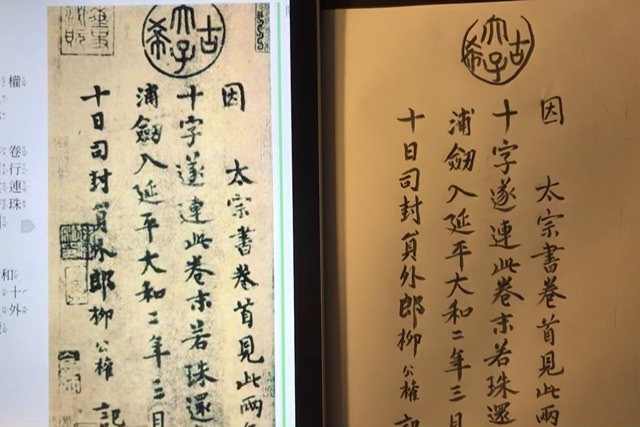 古希天子
因 太宗書卷首見此兩
十字遂連此卷末若珠還
浦劒入延平大和二年三月
十日司封員外郎柳公權 記
權
卷行連珠
和十外
古希天子
因 太宗書卷首見此兩
十字遂連此卷末若珠還
浦劒入延平大和二年三月
十日司封員外郎柳公權 記